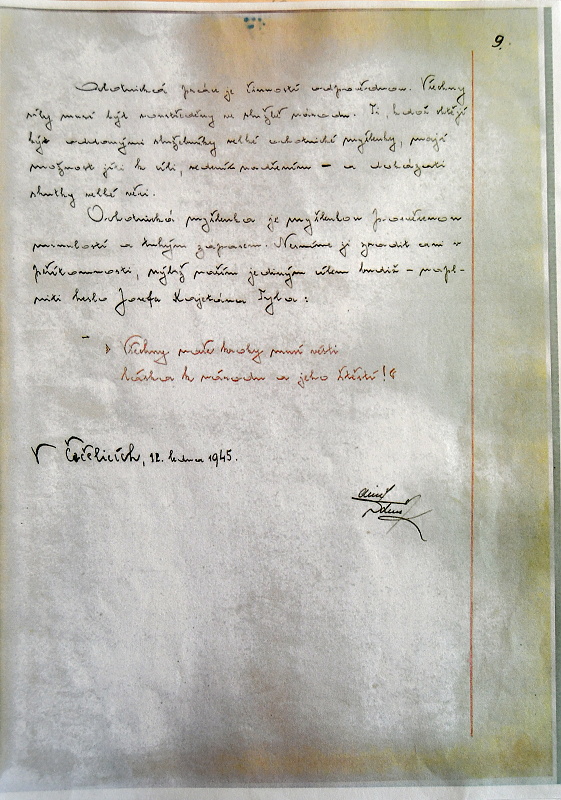 9.
Ochotnická práce je činností odpovědnou. Všechny
síly musí být soustředěny ve službě národu. Ti, kdož chtějí
být oddanými služebníky velké ochotnické myšlenky, mají
možnost jíti k cíli, vedeni nadšením – a dokázati
skutky velké věci.
Ochotnická myšlenka je myšlenkou posvěcenou
minulostí a tuhým zápasem. Nesmíme ji zradit ani v
přítomnosti, nýbrž naším jediným cílem budiž – napl-
niti heslo Josefa Kajetána Tyla:
– „Všechny naše kroky musí vésti
láska k národu a jeho štěstí!“
V Čečelicích, 12. ledna 1945.